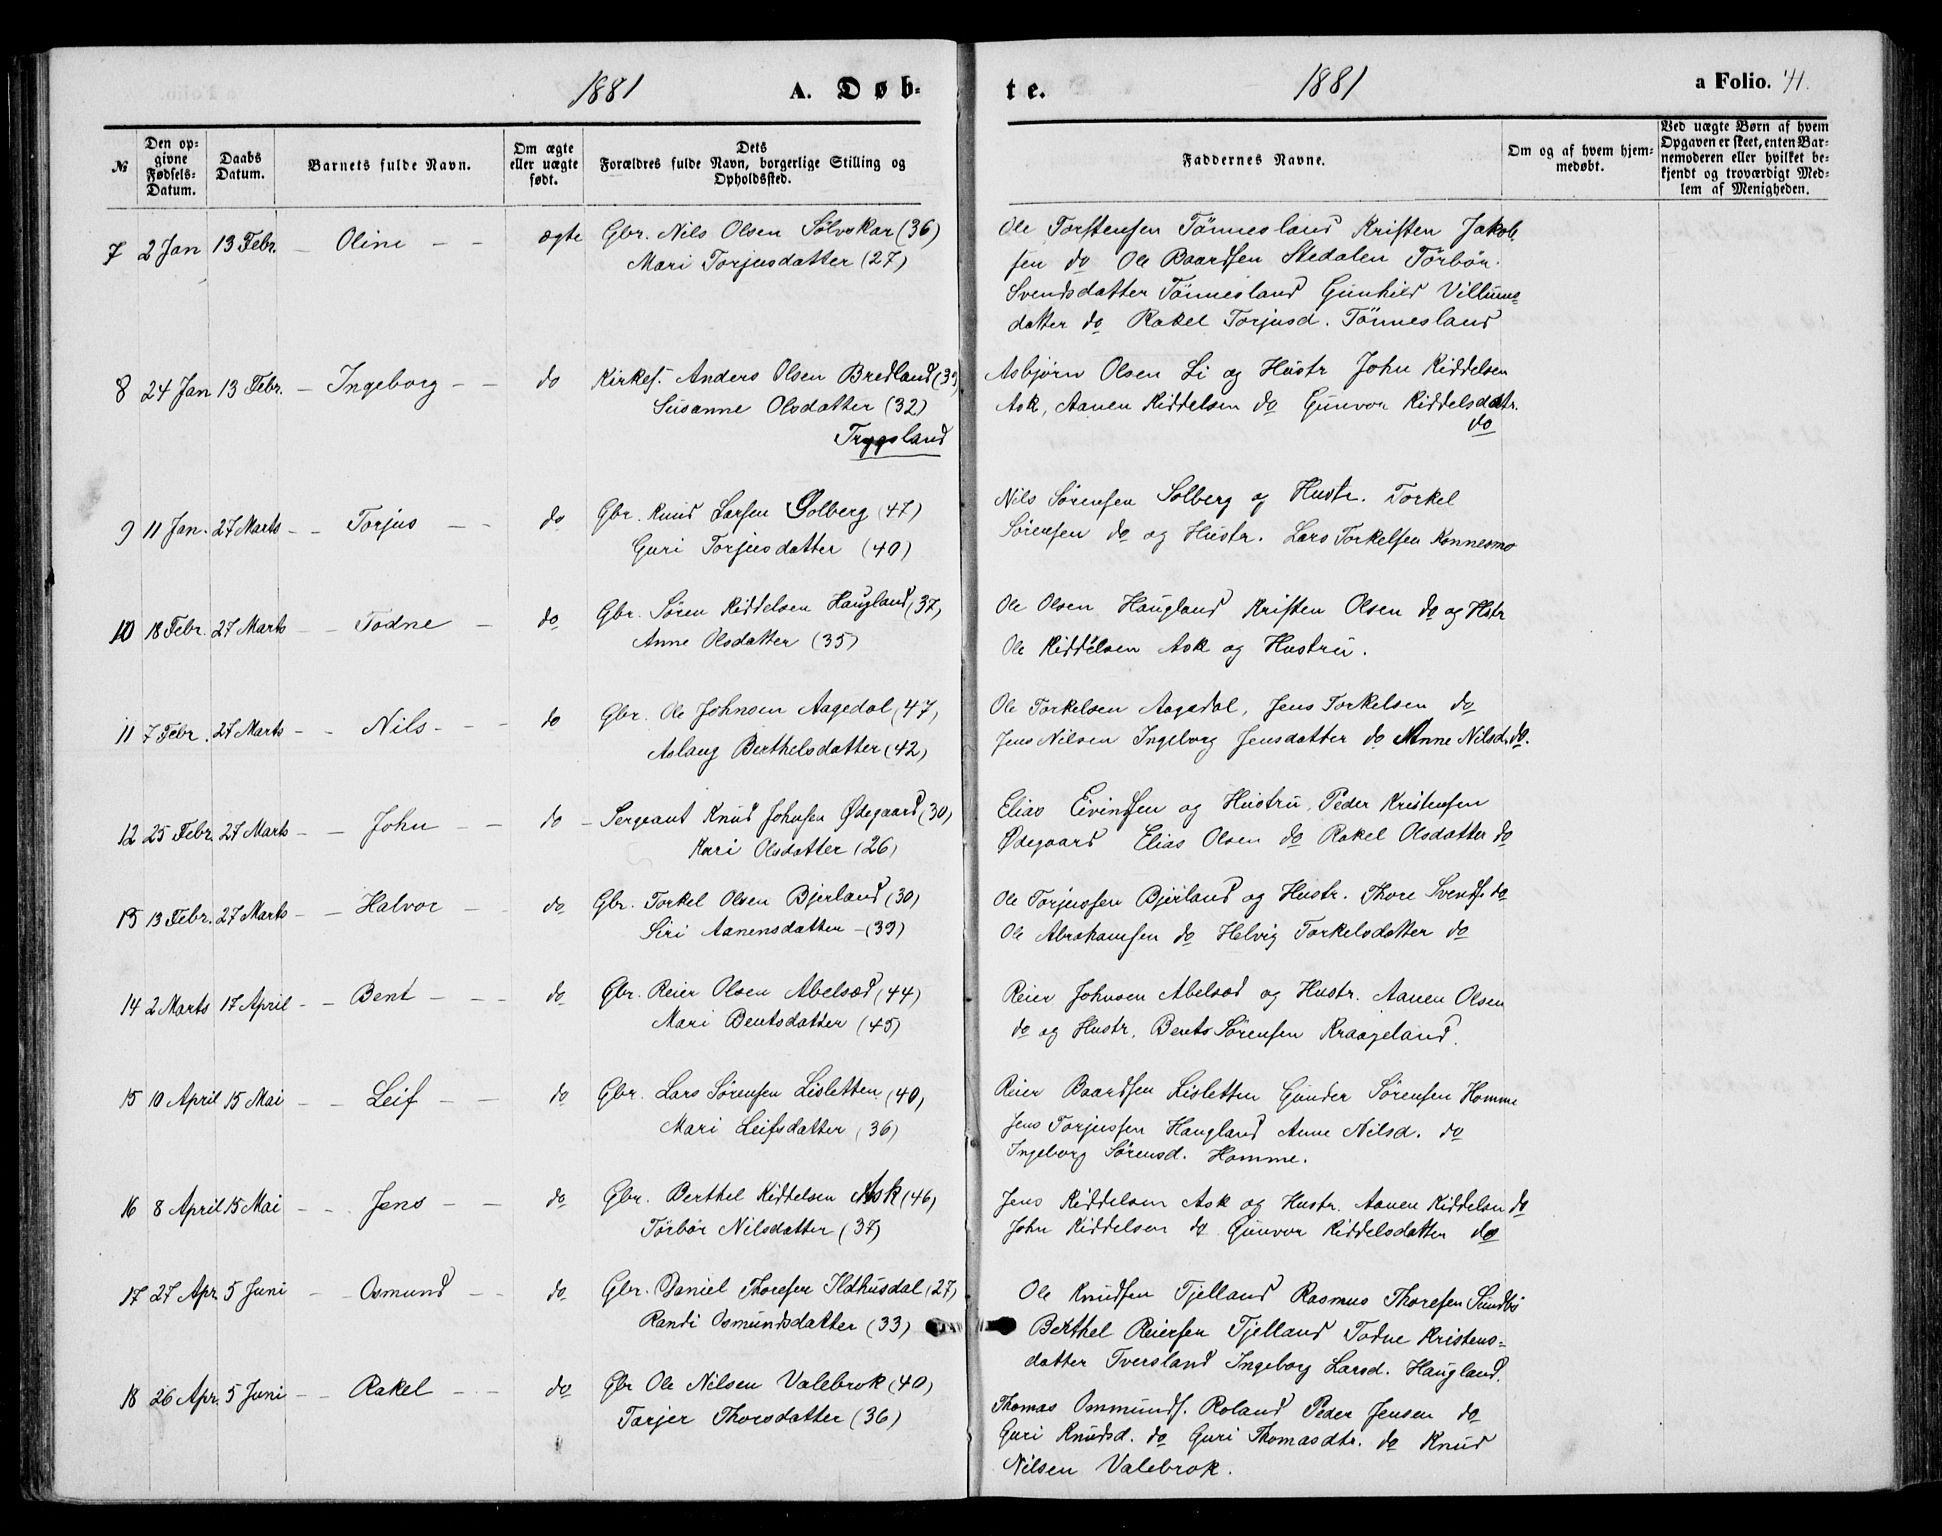 1881 A. Døb-
te. 1881 a Folio. 41.
№
Den op-
givne
Fødsels-
Datum.
Daabs
Datum.
Barnets fulde Navn.
Om ægte
eller uægte
født.
Dets
Forældres fulde Navn, borgerlige Stilling og
Opholdssted.
Faddernes Navne.
Om og af hvem hjem-
medøbt.
Ved uægte Børn af hvem
Opgaven er skeet, enten Bar-
nemoderen eller hvilket be-
kjendt og troværdigt Med-
lem af Menigheden.
7 2 Jan 13 Febr. – Oline – – ægte Gbr. Nils Olsen Sølvskar (36)
Mari Torjusdatter (27)
Ole Torstensen Tönnesland Kristen Jakob
sen do Ole Baardsen Stedalen Törbör
Svendsdatter Tönnesland Gunhild Villums-
datter do Rakel Torjusd. Tönnesland
8 24 Jan 13 Febr. – Ingeborg – – do Kirkes. Anders Olsen Bredland (39)
Susanne Olsdatter (32)
Trygsland
Asbjørn Olsen Li og Hustr John Kiddelsen
Ask, Aanen Kiddelsen do Gunvor Kiddelsdatr.
do
9 11 Jan. 27 Marts – – Torjus – – do Gbr. Knud Larsen Solberg (47)
Guri Torjusdatter (40)
Nils Sørensen Solberg og Hustr. Torkel
Sørensen do og Hustr. Lars Torkelsen Konnesmo
10 18 Febr. 27 Marts – – Todne – do Gbr. Sören Kiddelsen Haugland (37)
Anne Olsdatter (35)
Ole Olsen Haugland Kristen Olsen do og Hstr
Ole Kiddelsen Ask og Hustru.
11 7 Febr. 27 Marts – – Nils – – do Gbr. Ole Johnsen Aagedal (47)
Aslaug Berthelsdatter (42)
Ole Torkelsen Aagedal, Jens Torkelsen do
Jens Nilsen Ingeborg Jensdatter do Anne Nilsd. do.
12 25 Febr. 27 Marts – – John – – do – Sergeant Knud Johnsen Ødegaard (30)
Kari Olsdatter (26)
Elias Eivindsen og Hustru, Peder Kristensen
Ødegaard Elias Olsen do Rakel Olsdatter do
13 13 Febr. 27 Marts – – Halvor – – do Gbr. Torkel Olsen Bjerland (30)
Siri Aanensdatter – (39)
Ole Torjussen Bjerland og Hustr. Thore Svends. do
Ole Abrahamsen do Helvig Torkelsdatter do
14 2 Marts 17 April – – Bent – – – do Gbr. Reier Olsen Abelsæd (44)
Mari Bentsdatter (45)
Reier Johnsen Abelsæd og Hustr. Aanen Olsen
do og Hustr. Bents Sørensen Kraageland.
15 10 April 15 Mai – – Leif – – do Gbr. Lars Sörensen Lisletten (40)
Mari Leifsdatter (36)
Reier Baardsen Lisletten Gunder Sørensen Homme
Jens Torjussen Haugland Anne Nilsd. do
Ingeborg Sörensd. Homme.
16 8 April 15 Mai – – Jens – – do Gbr. Berthel Kiddelsen Ask (46)
Törbör Nilsdatter (37)
Jens Kiddelsen Ask og Hustr. Aanen Kiddelsen do
John Kiddelsen do Gunvor Kiddelsdatter do
17 27 Apr. 5 Juni – – Osmund – – do Gbr. Daniel Thoresen Ildhusdal (27)
Randi Osmundsdatter (33)
Ole Knudsen Tjelland Rasmus Thoresen Sundbö
Berthel Reiersen Tjelland Todne Kristens-
datter Tversland Ingeborg Larsd. Haugland.
18 26 Apr. 5 Juni – – Rakel – – do Gbr Ole Nilsen Valebrok (40)
Tarjer Thorsdatter (36)
Thomas Ommunds. Roland Peder Jensen do
Guri Knudsd. do Guri Thomasdtr. do Knud
Nilsen Valebrok.